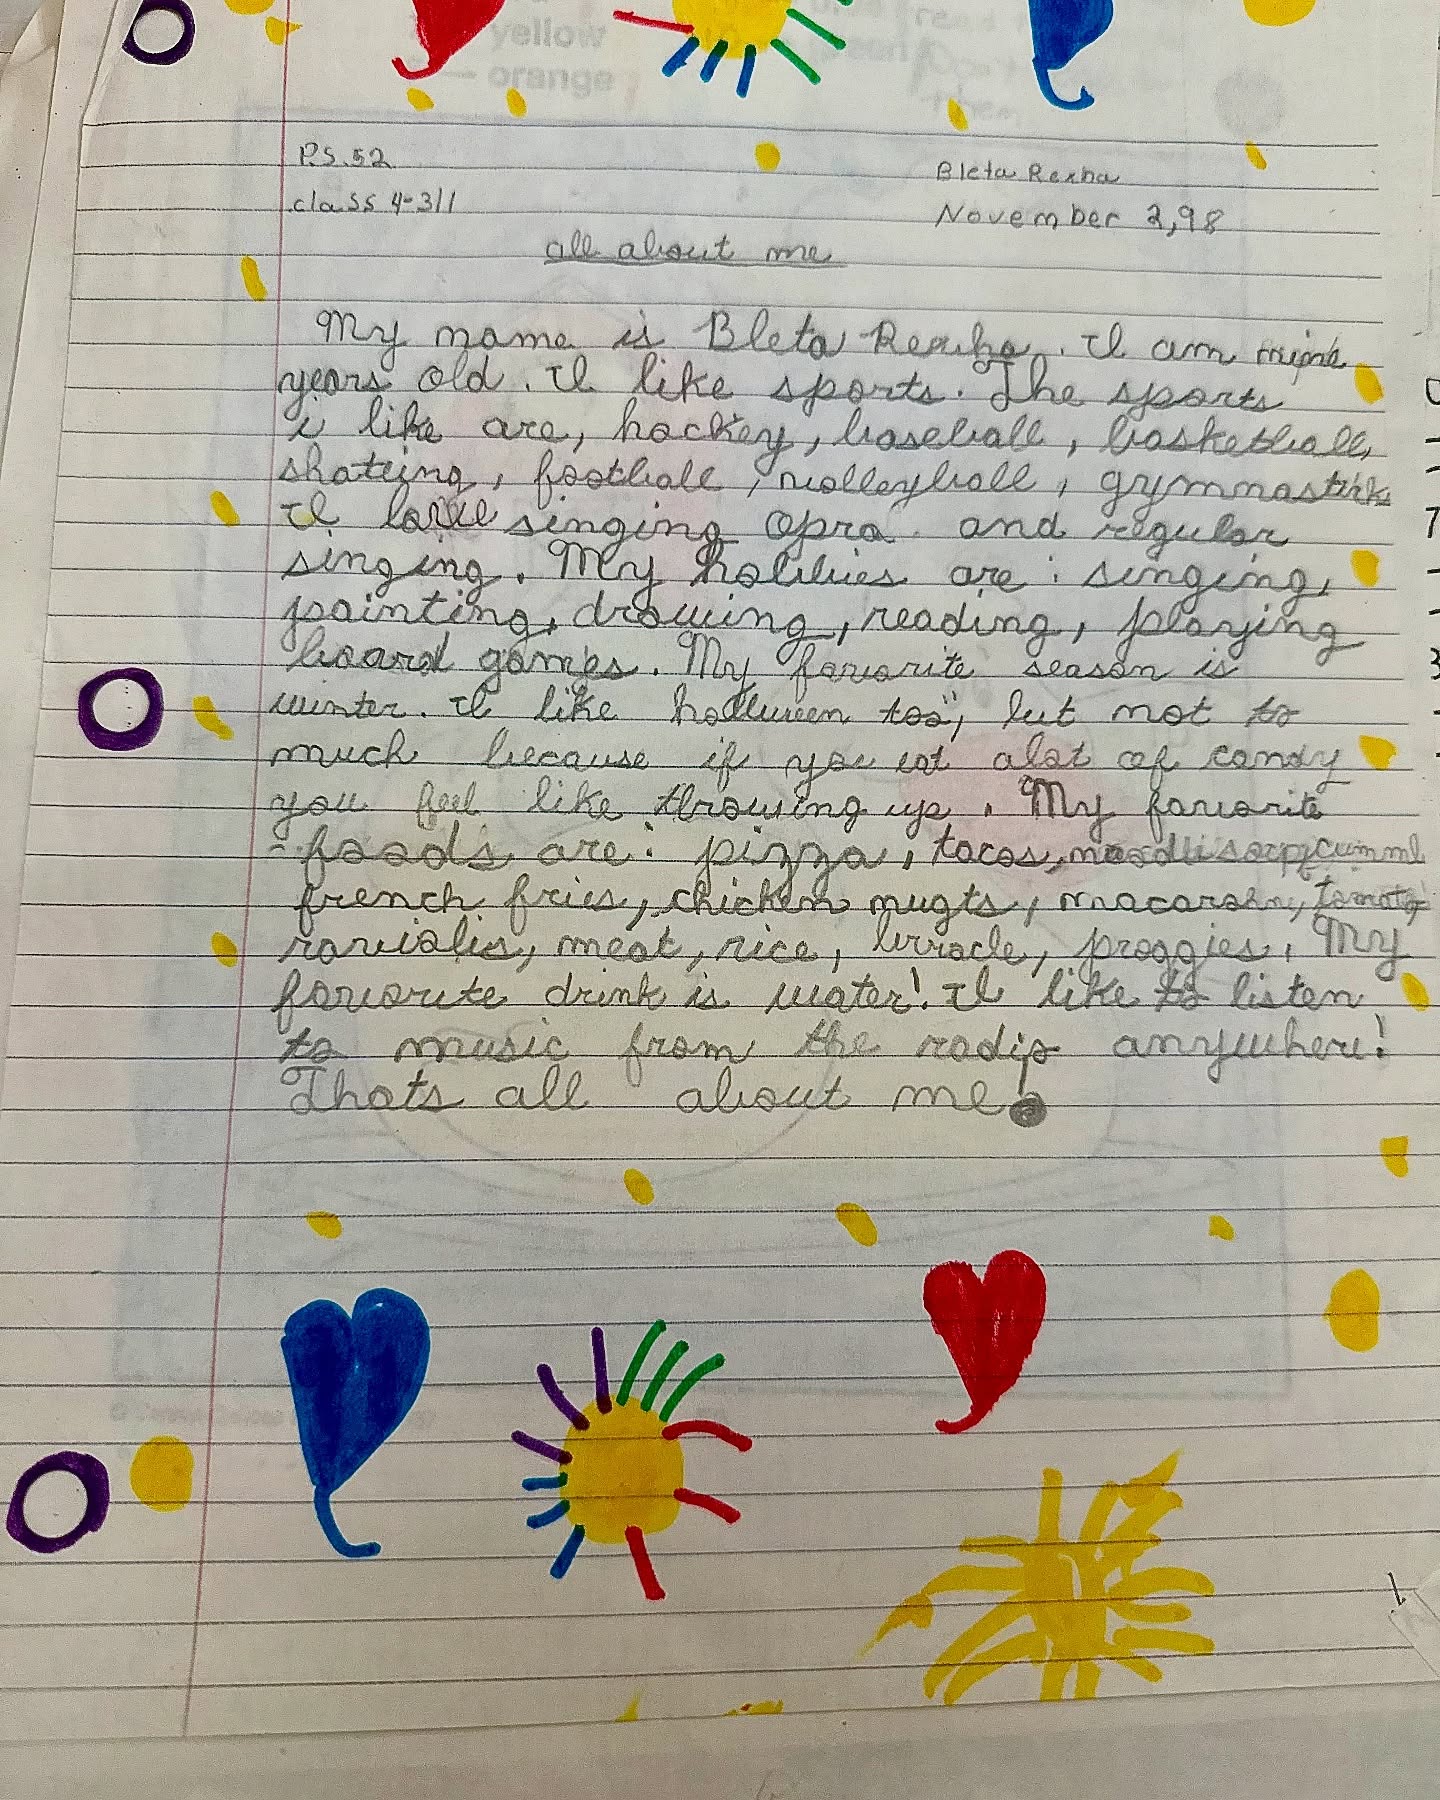 yellow
— orange
P.S. 52
Bleta Rexha
class 4-311
November 2, 98
all about me
My name is Bleta Rexha. I am nine
years old. I like sports. The sports
i like are, hockey, baseball, basketball,
skateing, football, volleyball, gymnastiks
I love singing opra and regular
singing. My hobbies are: singing,
painting, drawing, reading, playing
board games. My favorite season is
winter. I like hallween too, but not to
much because if you eat alot of candy
you feel like throwing up. My favorite
foods are: pizza, tacos,
french fries, chicken nugts, macaroni, tomato,
raviolis, meat, rice, proggies. My
favorite drink is water!. I like to listen
to music from the radio anywhere!
Thats all about me!